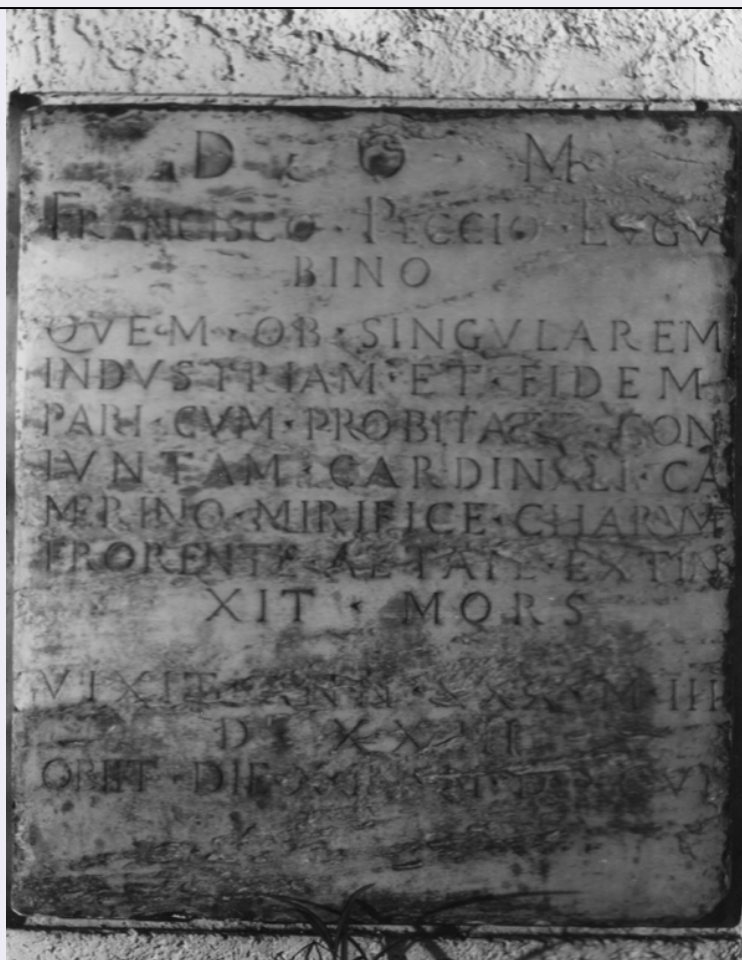 D · O · M
FRANCISCO · PECCIO · EVGV
BINO
QVEM · OB · SINGVLAREM
INDVSTRIAM · ET · FIDEM
PARI · CVM · PROBITATE · CON
IVNTAM · CARDINALI · CA
MERINO · MIRIFICE · CHARVM
FRORENTE · AETATE · EXTIN
XIT · MORS
VIXIT · ANN · XXX · M · III
OBIIT · DIE